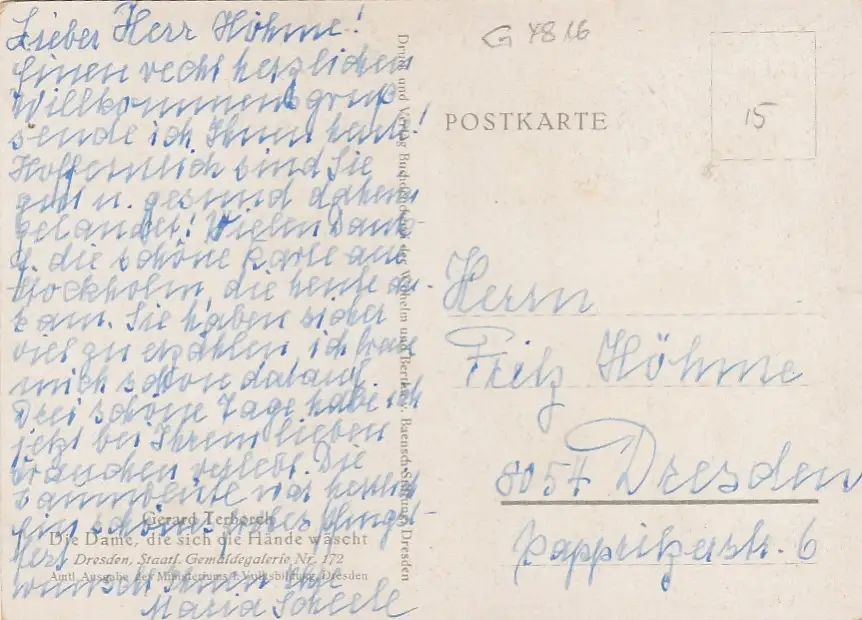 Lieber Herr Höhme!
Einen recht herzlichen
Willkommensgruß
sende ich Ihnen heute!
Hoffentlich sind Sie
gut u. gesund daheim
gelandet! Vielen Dank
f. die schöne Karte aus
Stockholm, die heute an-
kam. Sie haben sicher
viel zu erzählen, ich freue
mich schon darauf.
Drei schöne Tage habe ich
jetzt bei Ihrem lieben
verlebt. Die
war herrlich
Ein schönes frohes Pfingst-
fest
wünscht Ihnen Ihre
Maria Scheele
Gerard Terborch
Die Dame, die sich die Hände wäscht
Dresden, Staatl. Gemäldegalerie Nr. 172
Amtl. Ausgabe des Ministeriums f. Volksbildung, Dresden
Druck und Verlag Buchdruckerei der Wilhelm und Bertha v. Baensch Stiftung Dresden
G 4816
POSTKARTE
15
Herrn
Fritz Höhme
8054 Dresden
Pappritzerstr. 6